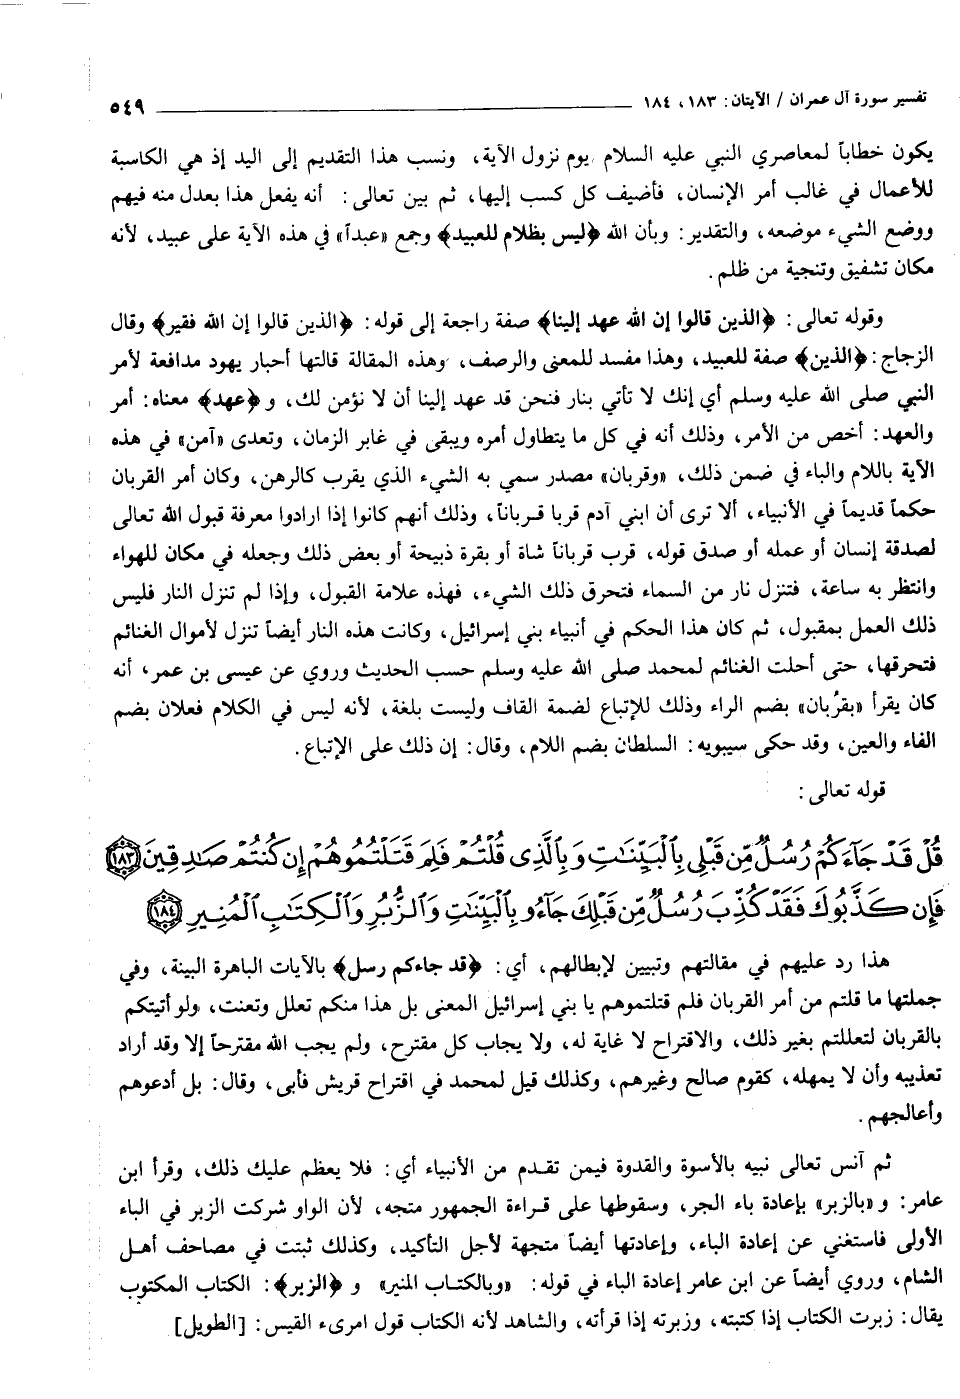 تفسير سورة آل عمران / الآيتان: ١٨٣، ١٨٤ ٥٤٩
يكون خطاباً لمعاصري النبي عليه السلام يوم نزول الآية، ونسب هذا التقديم إلى اليد إذ هي الكاسبة
للأعمال في غالب أمر الإنسان، فأضيف كل كسب إليها، ثم بين تعالى: أنه يفعل هذا بعدل منه فيهم
ووضع الشيء موضعه، والتقدير: وبأن الله ﴿ليس بظلام للعبيد﴾ وجمع «عبداً» في هذه الآية على عبيد، لأنه
مكان تشفيق وتنجية من ظلم.
وقوله تعالى: ﴿الذين قالوا إن الله عهد إلينا﴾ صفة راجعة إلى قوله: ﴿الذين قالوا إن الله فقير﴾ وقال
الزجاج: ﴿الذين﴾ صفة للعبيد، وهذا مفسد للمعنى والرصف، وهذه المقالة قالتها أحبار يهود مدافعة لأمر
النبي صلى الله عليه وسلم أي إنك لا تأتي بنار فنحن قد عهد إلينا أن لا نؤمن لك، و ﴿عهد﴾ معناه: أمر
والعهد: أخص من الأمر، وذلك أنه في كل ما يتطاول أمره ويبقى في غابر الزمان، وتعدى «آمن» في هذه
الآية باللام والباء في ضمن ذلك، «وقربان» مصدر سمي به الشيء الذي يقرب كالرهن، وكان أمر القربان
حكماً قديماً في الأنبياء، ألا ترى أن ابني آدم قربا قرباناً، وذلك أنهم كانوا إذا ارادوا معرفة قبول الله تعالى
لصدقة إنسان أو عمله أو صدق قوله، قرب قرباناً شاة أو بقرة ذبيحة أو بعض ذلك وجعله في مكان للهواء
وانتظر به ساعة، فتنزل نار من السماء فتحرق ذلك الشيء، فهذه علامة القبول، وإذا لم تنزل النار فليس
ذلك العمل بمقبول، ثم كان هذا الحكم في أنبياء بني إسرائيل، وكانت هذه النار أيضاً تنزل لأموال الغنائم
فتحرقها، حتى أحلت الغنائم لمحمد صلى الله عليه وسلم حسب الحديث وروي عن عيسى بن عمر، أنه
كان يقرأ «بقرُبان» بضم الراء وذلك للإتباع لضمة القاف وليست بلغة، لأنه ليس في الكلام فعلان بضم
الفاء والعين، وقد حكى سيبويه: السلطان بضم اللام، وقال: إن ذلك على الإتباع.
قوله تعالى:
قُلْ قَدْ جَاءَكُمْ رُسُلٌ مِّن قَبْلِي بِالْبَيِّنَاتِ وَبِالَّذِي قُلْتُمْ فَلِمَ قَتَلْتُمُوهُمْ إِن كُنتُمْ صَادِقِينَ ١٨٣
فَإِن كَذَّبُوكَ فَقَدْ كُذِّبَ رُسُلٌ مِّن قَبْلِكَ جَاءُو بِالْبَيِّنَاتِ وَالزُّبُرِ وَالْكِتَابِ الْمُنِيرِ ١٨٤
هذا رد عليهم في مقالتهم وتبيين لإبطالهم، أي: ﴿قد جاءكم رسل﴾ بالآيات الباهرة البينة، وفي
جملتها ما قلتم من أمر القربان فلم قتلتموهم يا بني إسرائيل المعنى بل هذا منكم تعلل وتعنت، ولو أتيتكم
بالقربان لتعللتم بغير ذلك، والاقتراح لا غاية له، ولا يجاب كل مقترح، ولم يجب الله مقترحاً إلا وقد أراد
تعذيبه وأن لا يمهله، كقوم صالح وغيرهم، وكذلك قيل لمحمد في اقتراح قريش فأبى، وقال: بل أدعوهم
وأعالجهم.
ثم آنس تعالى نبيه بالأسوة والقدوة فيمن تقدم من الأنبياء أي: فلا يعظم عليك ذلك، وقرأ ابن
عامر: و «بالزبر» بإعادة باء الجر، وسقوطها على قراءة الجمهور متجه، لأن الواو شركت الزبر في الباء
الأولى فاستغني عن إعادة الباء، وإعادتها أيضاً متجهة لأجل التأكيد، وكذلك ثبتت في مصاحف أهل
الشام، وروي أيضاً عن ابن عامر إعادة الباء في قوله: «وبالكتاب المنير» و ﴿الزبر﴾: الكتاب المكتوب
يقال: زبرت الكتاب إذا كتبته، وزبرته إذا قرأته، والشاهد لأنه الكتاب قول امرىء القيس: [الطويل]